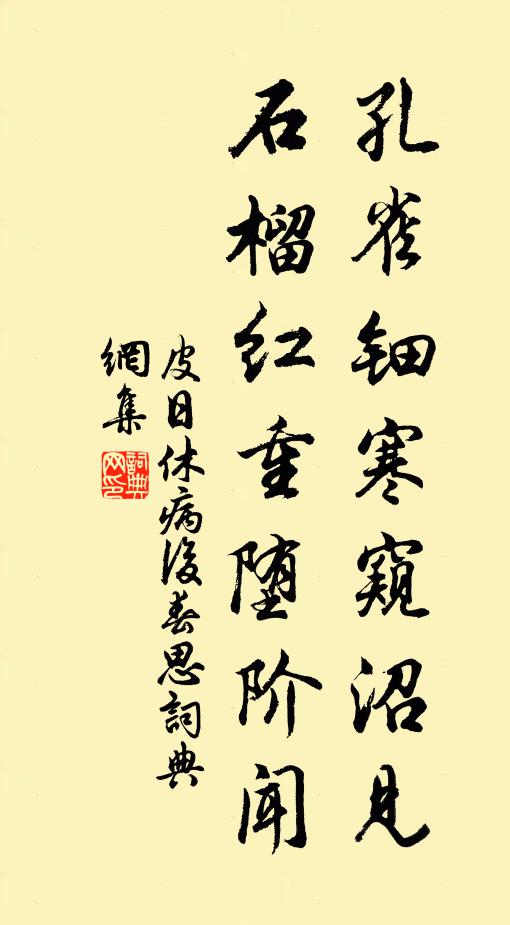 孔雀钿寒窥沼见
石榴红重堕阶闻
皮日休病後春思詞典
網集
詞典網印